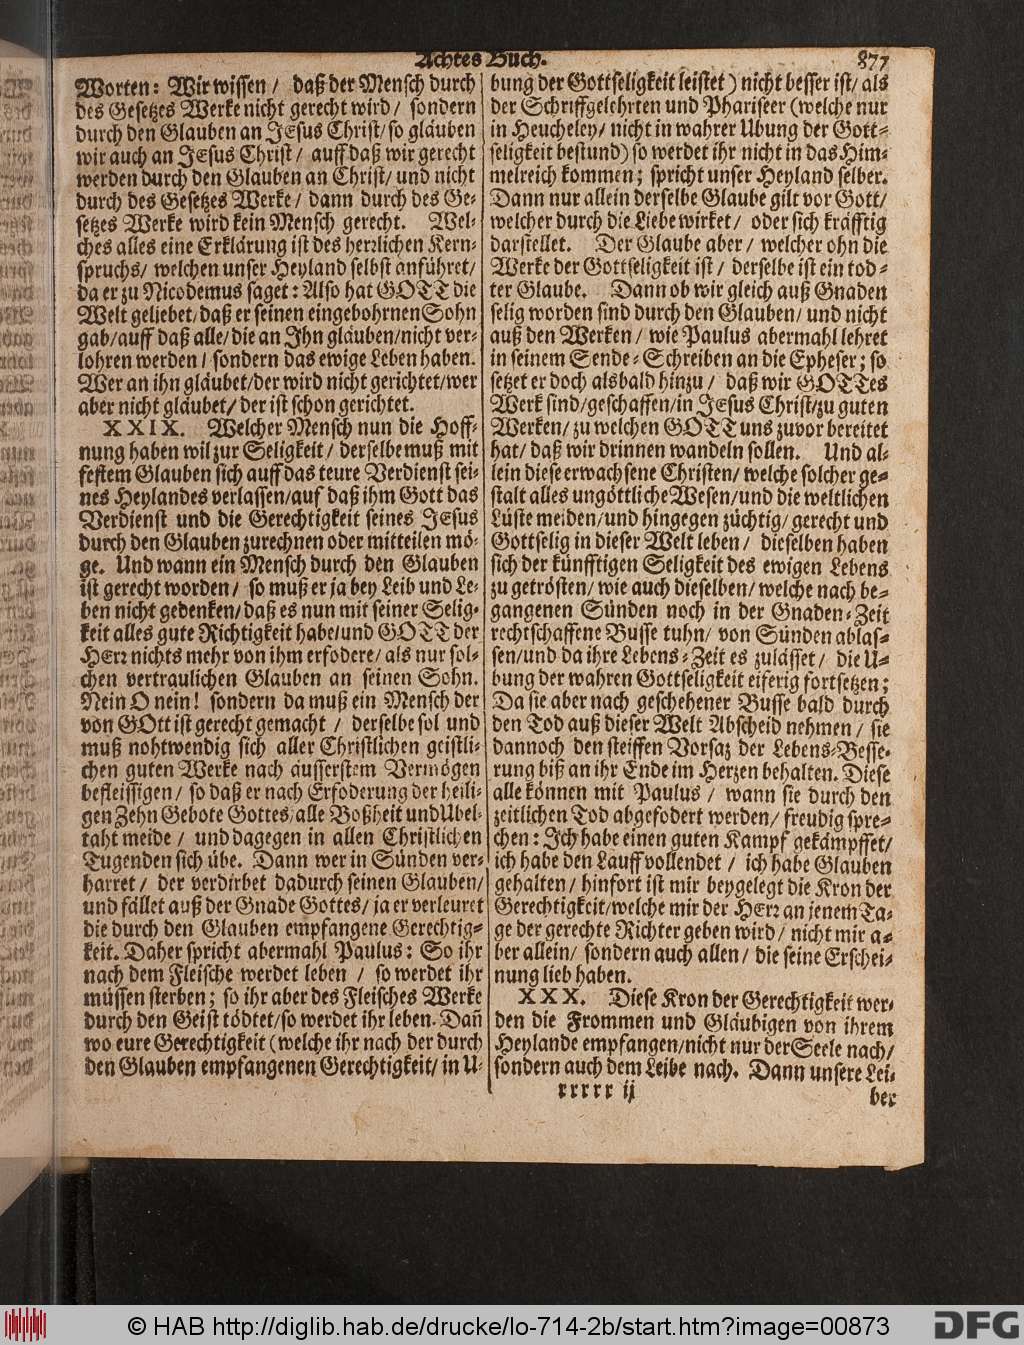 Achtes Buch. 877
Worten: Wir wissen / daß der Mensch durch
des Gesetzes Werke nicht gerecht wird / sondern
durch den Glauben an JEsus Christ / so gläuben
wir auch an JEsus Christ / auff daß wir gerecht
werden durch den Glauben an Christ / und nicht
durch des Gesetzes Werke / dann durch des Ge-
setzes Werke wird kein Mensch gerecht. Wel-
ches alles eine Erklärung ist des herrlichen Kern-
spruchs / welchen unser Heyland selbst anführet /
da er zu Nicodemus saget: Also hat GOTT die
Welt geliebet / daß er seinen eingebohrnen Sohn
gab / auff daß alle / die an Ihn gläuben / nicht ver-
lohren werden / sondern das ewige Leben haben.
Wer an ihn gläubet / der wird nicht gerichtet / wer
aber nicht gläubet / der ist schon gerichtet.
XXIX. Welcher Mensch nun die Hoff-
nung haben wil zur Seligkeit / derselbe muß mit
festem Glauben sich auff das teure Verdienst sei-
nes Heylandes verlassen / auf daß ihm Gott das
Verdienst und die Gerechtigkeit seines JEsus
durch den Glauben zurechnen oder mitteilen mö-
ge. Und wann ein Mensch durch den Glauben
ist gerecht worden / so muß er ja bey Leib und Le-
ben nicht gedenken / daß es nun mit seiner Selig-
keit alles gute Richtigkeit habe / und GOTT der
HErr nichts mehr von ihm erfodere / als nur sol-
chen vertraulichen Glauben an seinen Sohn.
Nein O nein! sondern da muß ein Mensch der
von GOtt ist gerecht gemacht / derselbe sol und
muß nohtwendig sich aller Christlichen geistli-
chen guten Werke nach äusserstem Vermögen
befleissigen / so daß er nach Erfoderung der heili-
gen Zehn Gebote Gottes / alle Boßheit und Ubel-
taht meide / und dagegen in allen Christlichen
Tugenden sich übe. Dann wer in Sünden ver-
harret / der verdirbet dadurch seinen Glauben /
und fället auß der Gnade Gottes / ja er verleuret
die durch den Glauben empfangene Gerechtig-
keit. Daher spricht abermahl Paulus: So ihr
nach dem Fleische werdet leben / so werdet ihr
müssen sterben; so ihr aber des Fleisches Werke
durch den Geist tödtet / so werdet ihr leben. Dañ
wo eure Gerechtigkeit (welche ihr nach der durch
den Glauben empfangenen Gerechtigkeit / in U-
bung der Gottseligkeit leistet) nicht besser ist / als
der Schriffgelehrten und Phariseer (welche nur
in Heucheley / nicht in wahrer Ubung der Gott-
seligkeit bestund) so werdet ihr nicht in das Him-
melreich kommen; spricht unser Heyland selber.
Dann nur allein derselbe Glaube gilt vor Gott /
welcher durch die Liebe wirket / oder sich kräfftig
darstellet. Der Glaube aber / welcher ohn die
Werke der Gottseligkeit ist / derselbe ist ein tod-
ter Glaube. Dann ob wir gleich auß Gnaden
selig worden sind durch den Glauben / und nicht
auß den Werken / wie Paulus abermahl lehret
in seinem Sende-Schreiben an die Epheser; so
setzet er doch alsbald hinzu / daß wir GOTTes
Werk sind / geschaffen / in JEsus Christ / zu guten
Werken / zu welchen GOTT uns zuvor bereitet
hat / daß wir drinnen wandeln sollen. Und al-
lein diese erwachsene Christen / welche solcher ge-
stalt alles ungöttliche Wesen / und die weltlichen
Lüste meiden / und hingegen züchtig / gerecht und
Gottselig in dieser Welt leben / dieselben haben
sich der künfftigen Seligkeit des ewigen Lebens
zu getrösten / wie auch dieselben / welche nach be-
gangenen Sünden noch in der Gnaden-Zeit
rechtschaffene Busse tuhn / von Sünden ablas-
sen / und da ihre Lebens-Zeit es zulässet / die U-
bung der wahren Gottseligkeit eiferig fortsetzen;
Da sie aber nach geschehener Busse bald durch
den Tod auß dieser Welt Abscheid nehmen / sie
dannoch den steiffen Vorsaz der Lebens-Besse-
rung biß an ihr Ende im Herzen behalten. Diese
alle können mit Paulus / wann sie durch den
zeitlichen Tod abgefodert werden / freudig spre-
chen: Ich habe einen guten Kampf gekämpffet /
ich habe den Lauff vollendet / ich habe Glauben
gehalten / hinfort ist mir beygelegt die Kron der
Gerechtigkeit / welche mir der HErr an jenem Ta-
ge der gerechte Richter geben wird / nicht mir a-
ber allein / sondern auch allen / die seine Erschei-
nung lieb haben.
XXX. Diese Kron der Gerechtigkeit wer-
den die Frommen und Gläubigen von ihrem
Heylande empfangen / nicht nur der Seele nach /
sondern auch dem Leibe nach. Dann unsere Lei-
xxxxx ij
ber
© HAB http://diglib.hab.de/drucke/lo-714-2b/start.htm?image=00873
DFG